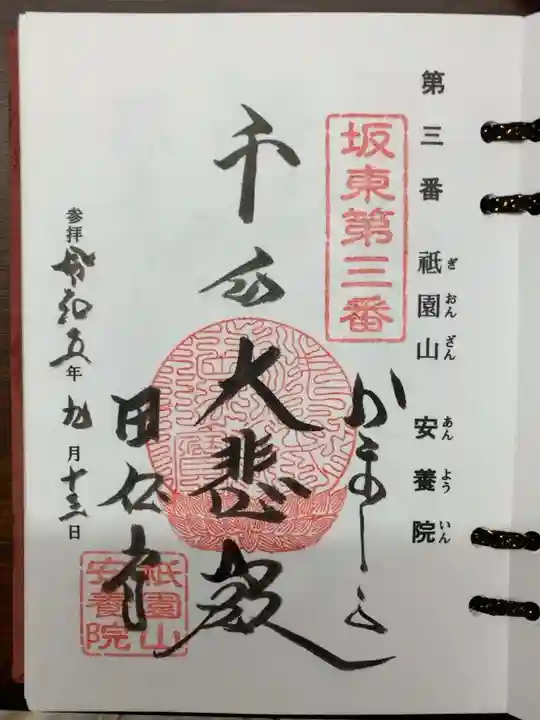 第三番 祇園山 安養院
ぎおんざん あんよういん
坂東第三番
かまくら
千手大悲殿
田代寺
祇園山
安養院
参拝 令和五年九月十三日